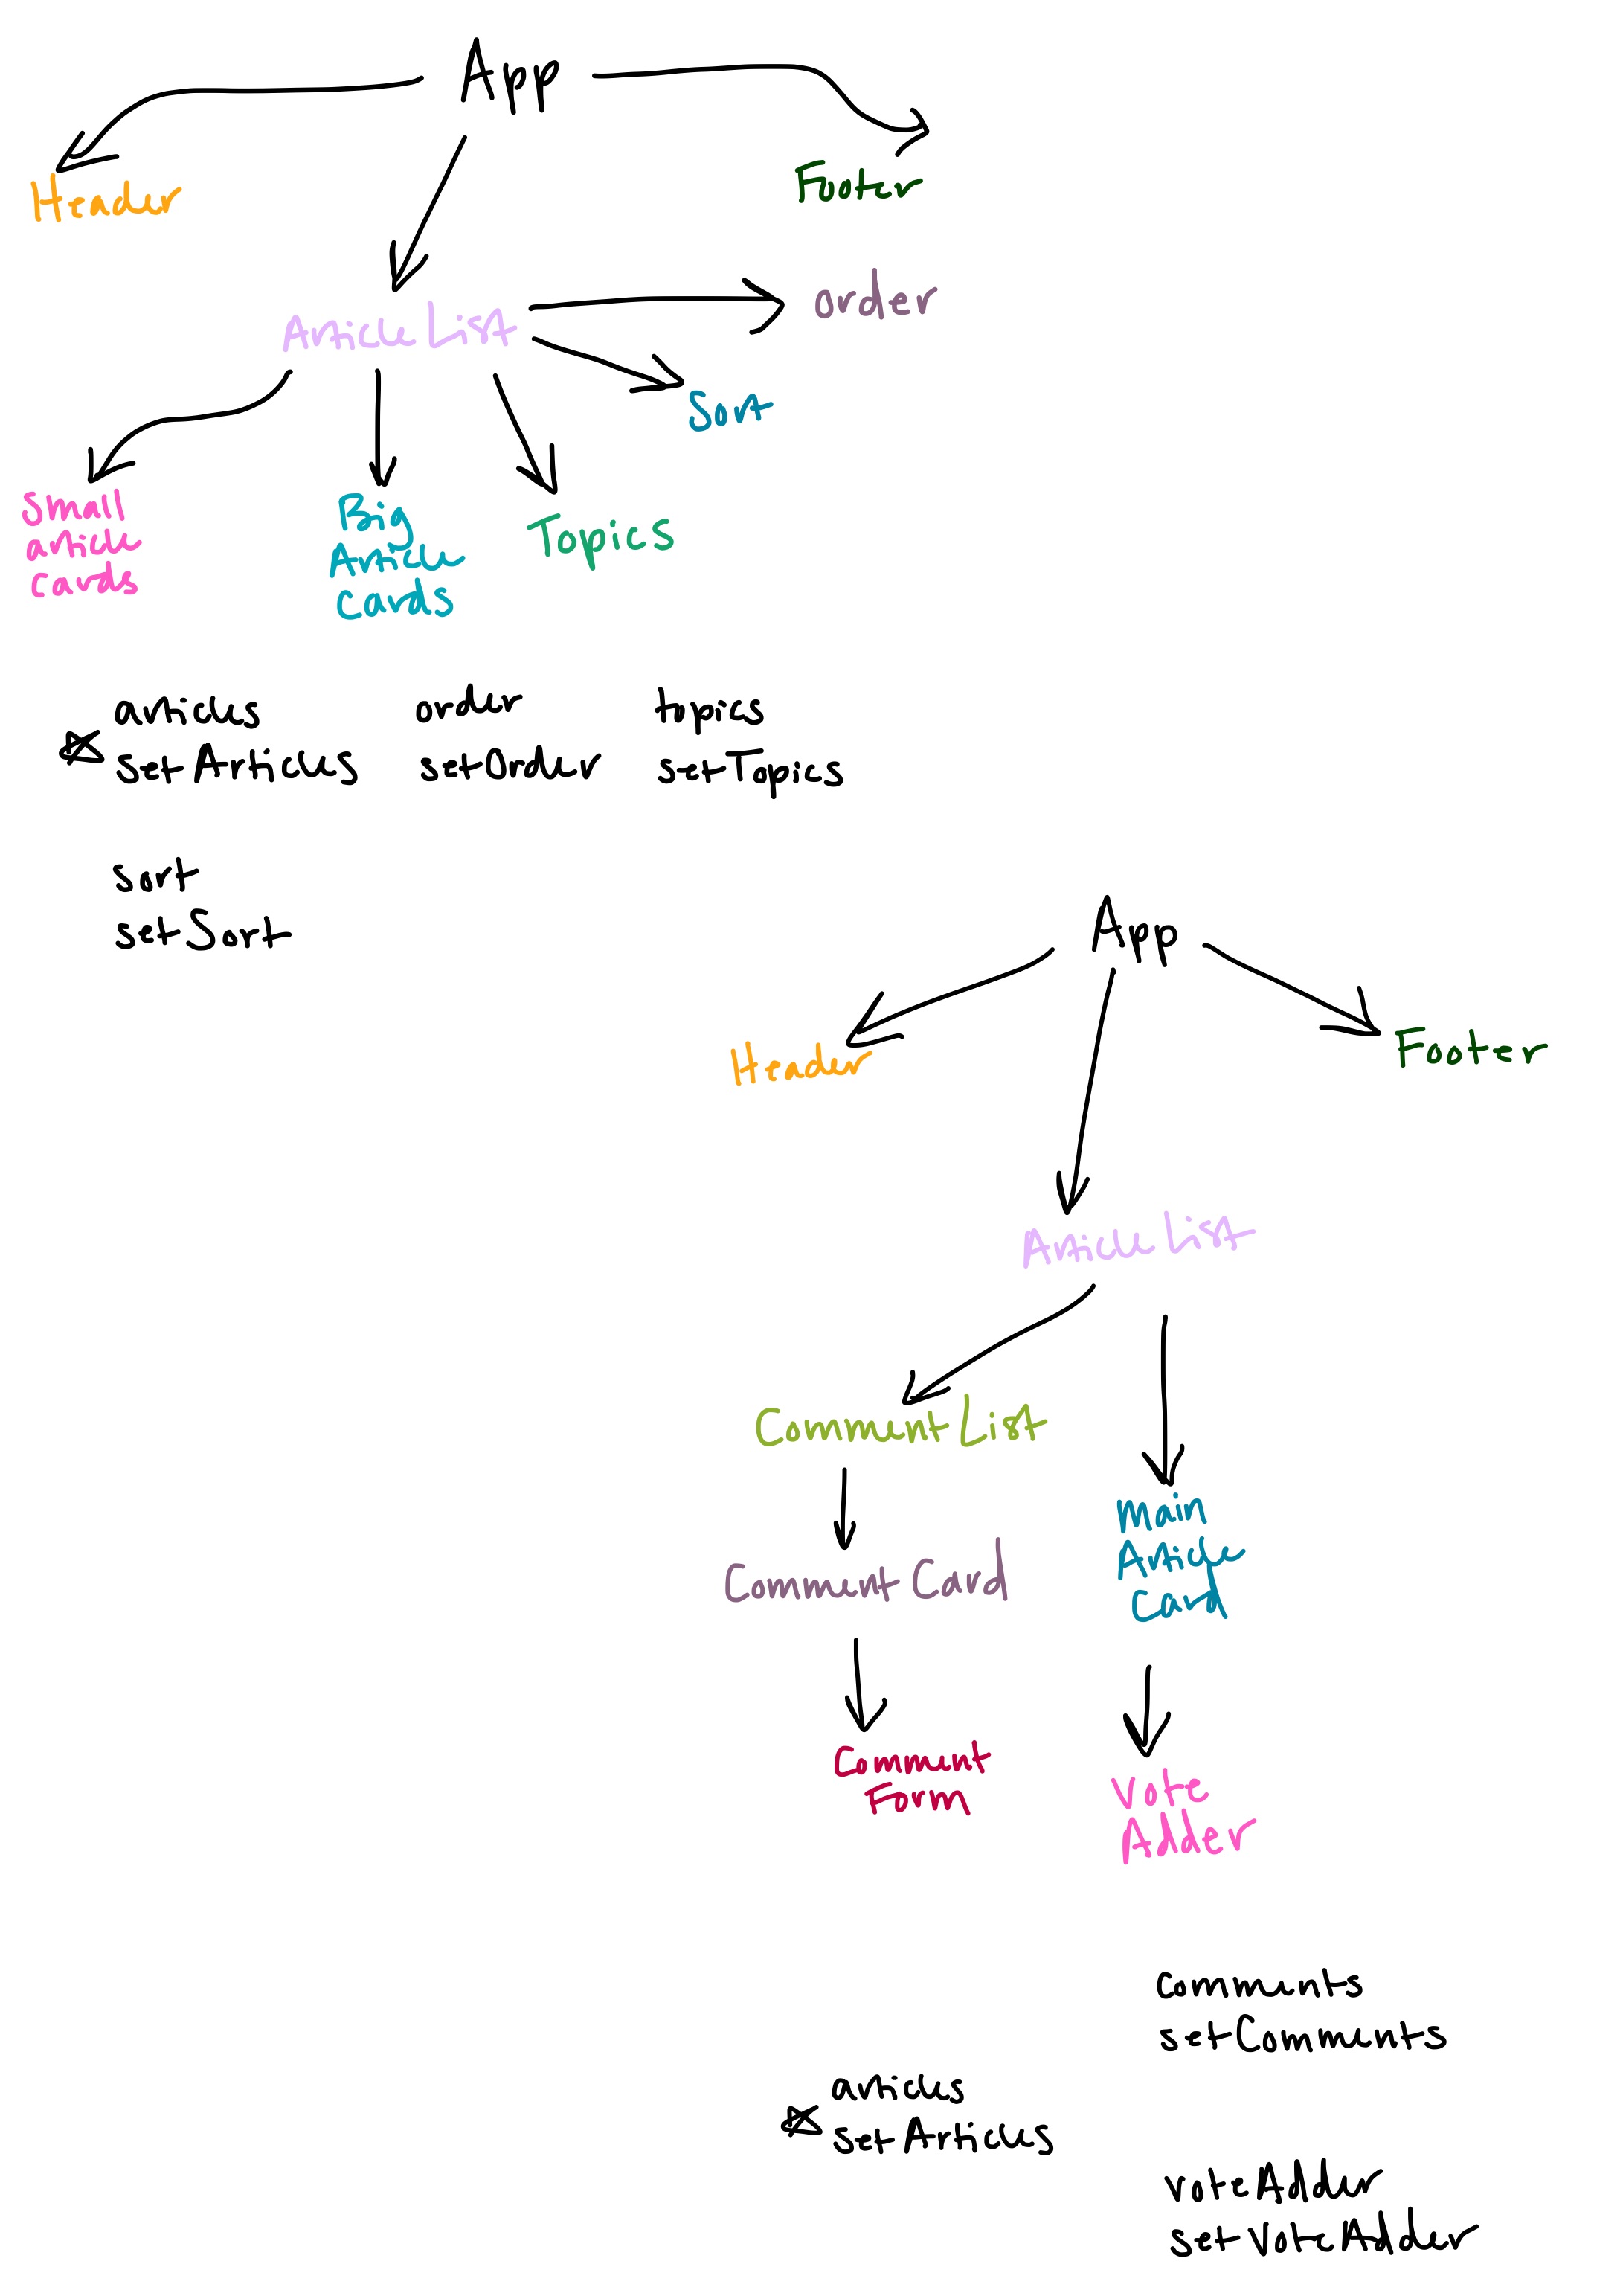 App
Header
Footer
Article List
order
Sort
Small
article
cards
Big
Article
Cards
Topics
articles
setArticles
order
setOrder
topics
setTopics
sort
setSort
App
Header
Footer
Article List
Comment List
Comment Card
Comment
Form
Main
Article
Card
Vote
Adder
comments
setComments
articles
setArticles
voteAdder
setVoteAdder